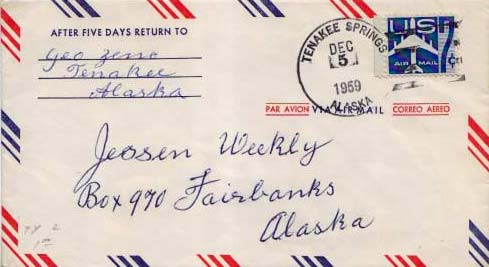 AFTER FIVE DAYS RETURN TO
Geo Zeno
Tenakee
Alaska
TENAKEE SPRINGS
DEC
5
1959
ALASKA
US
AIR MAIL
7¢
PAR AVION VIA AIR MAIL CORREO AEREO
Weekly
Box 970 Fairbanks
Alaska